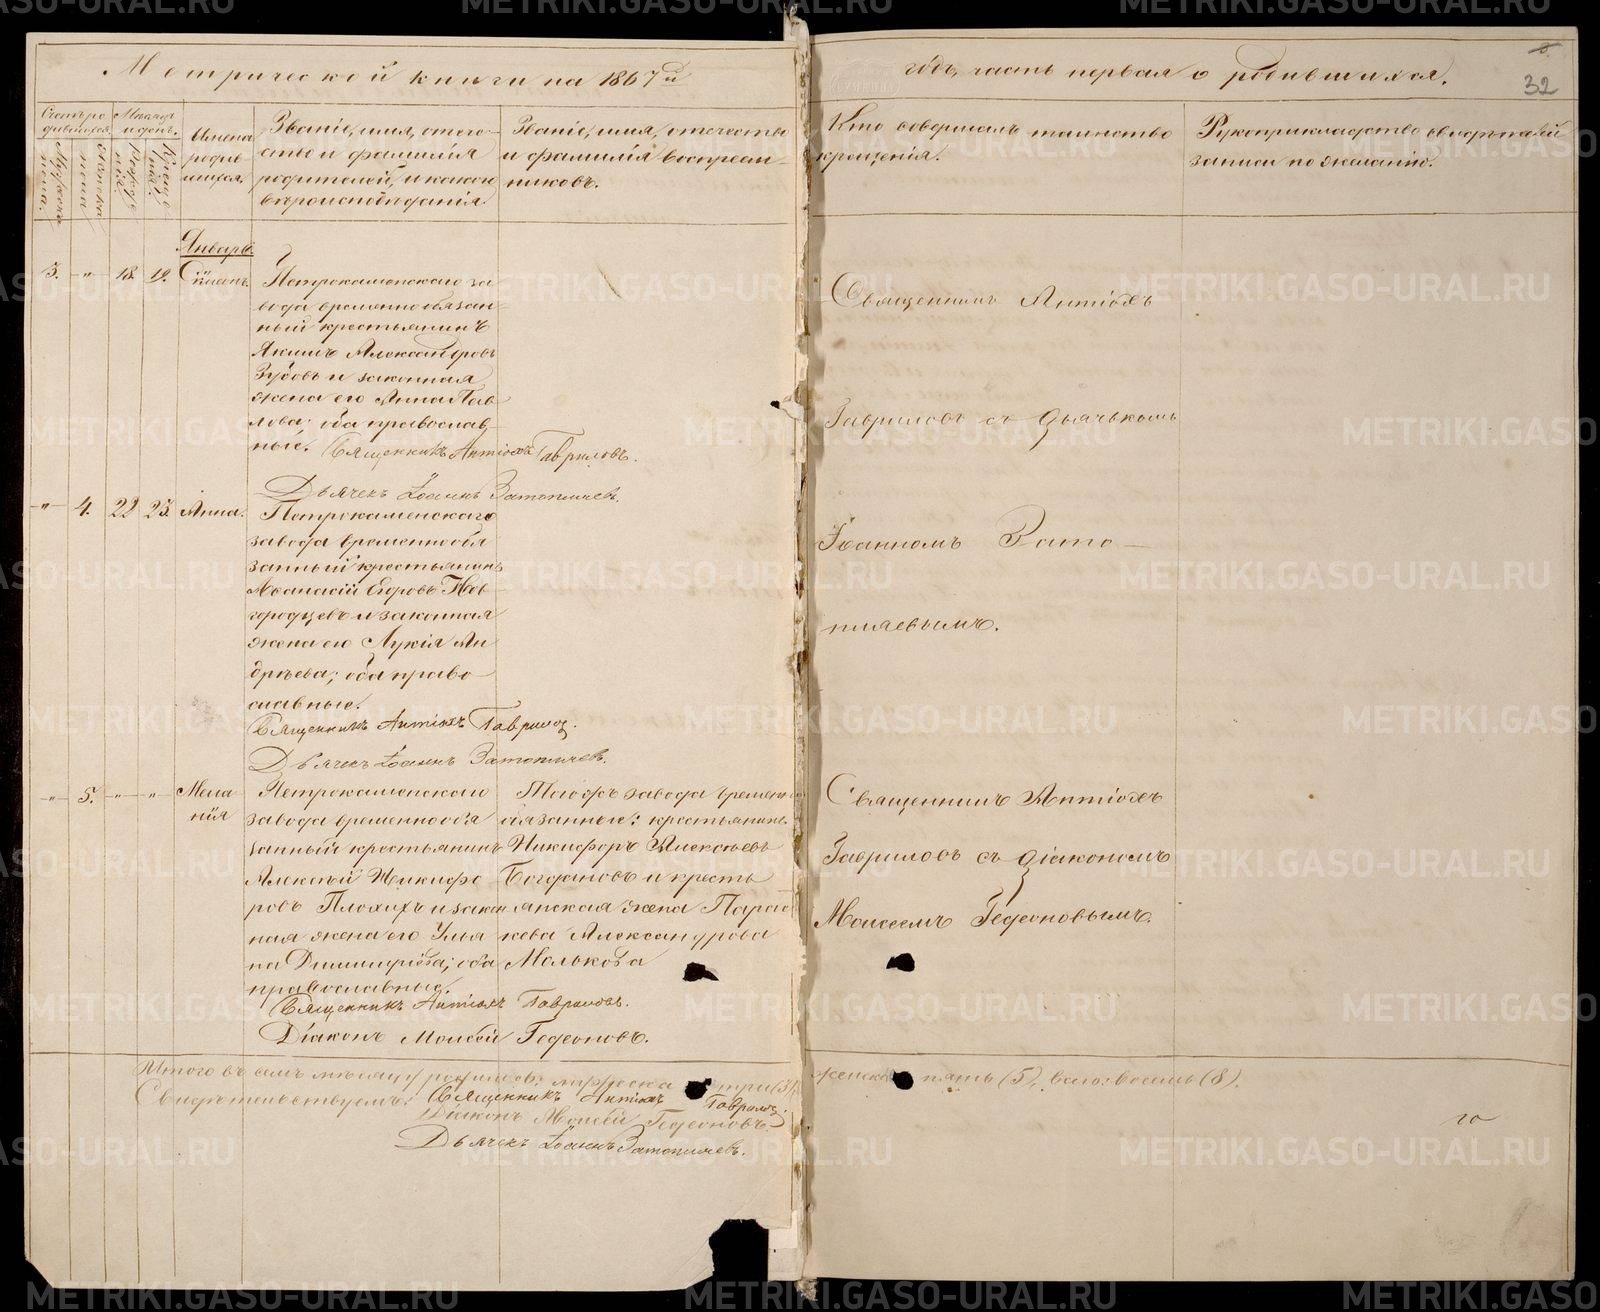 Метрической книги на 1867й
годъ, часть первая о родившихся.
32
Счетъ родившихся.
Мужеска пола.
Женска пола.
Мѣсяцъ и день.
Рожденія.
Крещенія.
Имена родившихся.
Званіе, имя, отечество и фамилія родителей, и какого вѣроисповѣданія.
Званіе, имя, отечество и фамилія воспреемниковъ.
Кто совершалъ таинство крещенія.
Рукоприкладство свидѣтелей записи по желанію.
Январь.
3. " 18. 19.
Петрокаменскаго за
вода временнообязан-
ный крестьянинъ
Якимъ Александровъ
Зубовъ и законная
жена его Анна Пав-
лова; оба православ-
ные. Священникъ Антіохъ Гавриловъ.
Дьячекъ Іоаннъ Затопляевъ.
Священникъ Антіохъ
Гавриловъ съ дьячькомъ
Іоанномъ Зато-
пляевымъ.
" 4. 22 23. Анна.
Петрокаменскаго
завода временнообя
занный крестьянинъ
Аѳанасій Егоровъ Нов-
городцевъ и законная
жена его Лукія Ан
дрѣева; оба право-
славные.
Священникъ Антіохъ Гавриловъ.
Дьячекъ Іоаннъ Затопляевъ.
" 5. " " Мела
нія
Петрокаменскаго
завода временнообя
занный крестьянинъ
Алексѣй Никифо
ровъ Плохихъ и закон
ная жена его Улья
на Димитріева; оба
православные.
Тогожъ завода времен
обязанные: крестьянинъ
Никифоръ Алексѣевъ
Богдановъ и кресть
янская жена Парас
кева Александрова
Молькова
Священникъ Антіохъ Гавриловъ.
Діаконъ Моисей Гедеоновъ.
Священникъ Антіохъ
Гавриловъ съ діакономъ
Моисеемъ Гедеоновымъ.
Итого въ семъ мѣсяцѣ родилось: мужеска три (3),
женска пять (5), всего: восемь (8).
Свидѣтельствуемъ: Священникъ Антіохъ Гавриловъ.
Діаконъ Моисей Гедеоновъ.
Дьячекъ Іоаннъ Затопляевъ.
METRIKI.GASO-URAL.RU